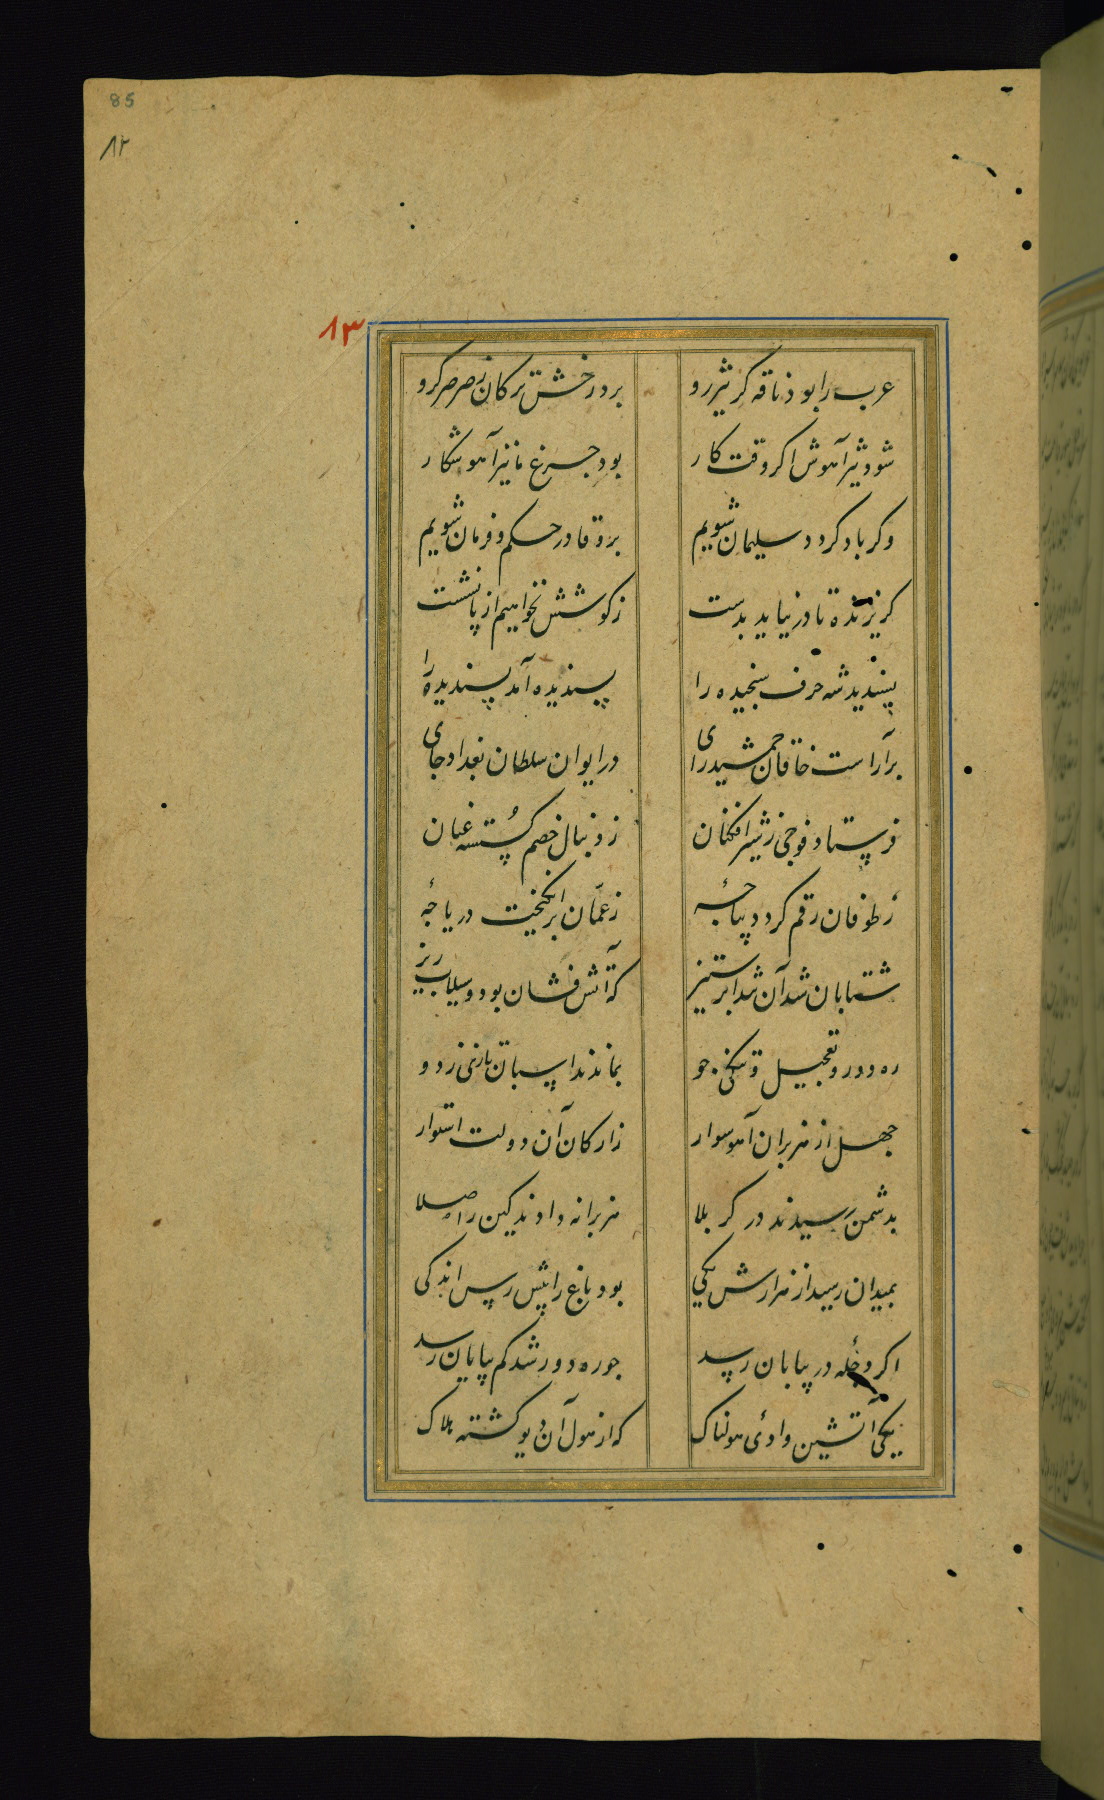 85
٨٢
٨٣
عرب را بود ناقه کر تیزرو برد رخش ترکان ز صرصر کرو
شود تیر آهوش اکر وقت کار بود جرغ ما نیز آهو شکار
وکر باد کردد سلیمان شویم برو قادر حکم و فرمان شویم
کریزنده تا در نیاید بدست ز کوشش نخواهیم از پا نشست
پسندید شه حرف سنجیده را پسندیده آمد پسندیده را
برآراست خاقان جمشید رای در ایوان سلطان بغداد جای
فرستاد فوجی ز شیر افکنان ز دنبال خصم کسسته عنان
ز طوفان رقم کرد دیباجهٔ ز عمّان برانکیخت دریاجهٔ
شتابان شد آن شد ابر ستیز که آتش فشان بود و سیلاب ریز
ره دور و تعجیل و جو بماندند اسبان تازی ز دو
جهل از هزبران آهو سوار ز ارکان آن دولت استوار
بدشمن رسیدند در کربلا هزبرانه دادند کین را صلا
بمیدان رسید از هزارش یکی بود باغ را پیش رس اندکی
اکر دجله در بیابان رسد جو ره دور شد کم بپایان رسد
یکی آتشین وادئ هولناک که از هول آن دیو کشته هلاک